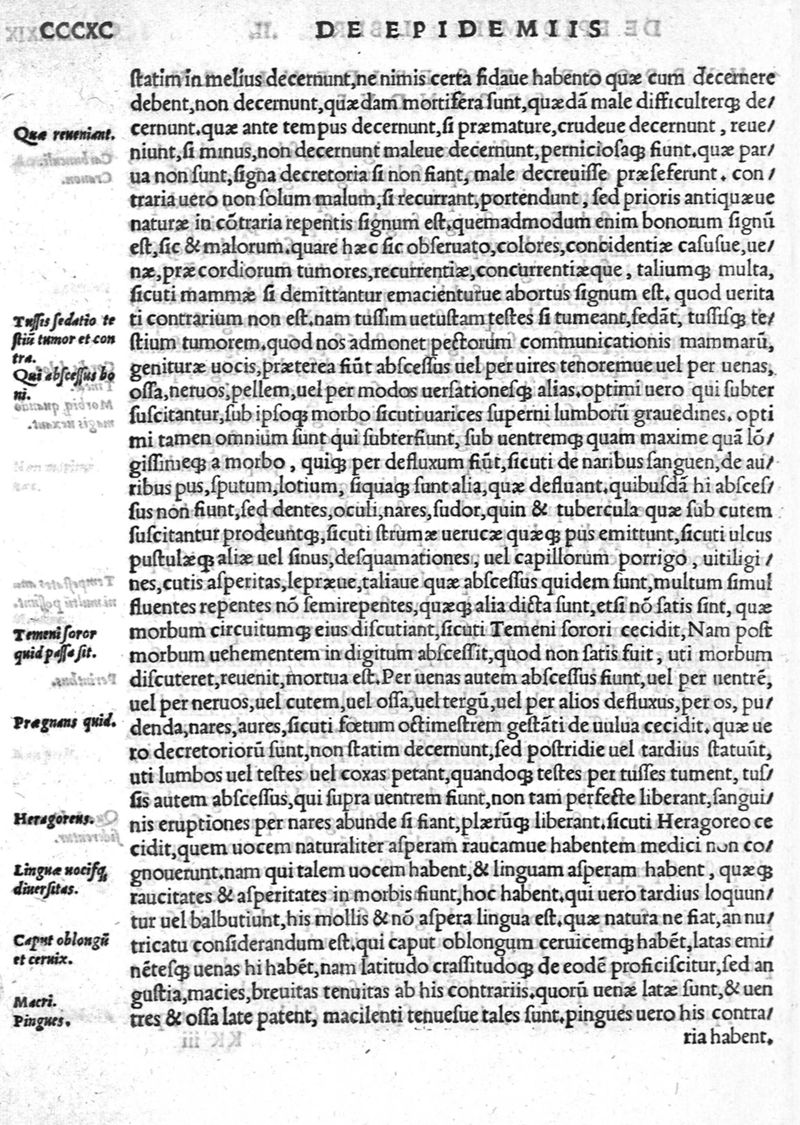 CCCXC
DE EPIDEMIIS
ſtatim in melius decernunt,ne nimis certa fidaue habento quæ cum decernere
debent,non decernunt,quædam mortifera ſunt,quædā male difficulterq́ de/
Quæ reueniant.
cernunt.quæ ante tempus decernunt,ſi præmature,crudeue decernunt, reue/
niunt,ſi minus,non decernunt maleue decernunt,pernicioſaq́ fiunt.quæ par/
ua non ſunt,ſigna decretoria ſi non fiant, male decreuiſſe præſeferunt. con/
traria uero non ſolum malum,ſi recurrant,portendunt, ſed prioris antiquæue
naturæ in cōtraria repentis ſignum eſt.quemadmodum enim bonorum ſignū
eſt,ſic & malorum.quare hæc ſic obſeruato,colores,concidentiæ caſuſue,ue/
næ,præcordiorum tumores,recurrentiæ,concurrentiæque, taliumq́ multa,
ſicuti mammæ ſi demittantur emacienturue abortus ſignum eſt. quod uerita
Tuſſis ſedatio te
ſtiū tumor et con
tra.
ti contrarium non eſt.nam tuſſim uetuſtam teſtes ſi tumeant,ſedāt, tuſſiſq́ te/
ſtium tumorem.quod nos admonet pectorum communicationis mammarū,
Qui abſceſſus bo
ni.
genituræ uocis,præterea fiūt abſceſſus uel per uires tenoremue uel per uenas,
oſſa,neruos,pellem,uel per modos uerſationeſq́ alias.optimi uero qui ſubter
ſuſcitantur,ſub ipſoq́ morbo ſicuti uarices ſuperni lumborū grauedines. opti
mi tamen omnium ſunt qui ſubterfiunt, ſub uentremq́ quam maxime quā lō/
giſſimeq́ a morbo, quiq́ per defluxum fiūt,ſicuti de naribus ſanguen,de au/
ribus pus,ſputum,lotium, ſiquaq́ ſunt alia,quæ defluant.quibuſdā hi abſceſ/
ſus non fiunt,ſed dentes,oculi,nares,ſudor,quin & tubercula quæ ſub cutem
ſuſcitantur prodeuntq́,ſicuti ſtrumæ uerucæ quæq́ pus emittunt,ſicuti ulcus
puſtulæq́ aliæ uel ſinus,deſquamationes, uel capillorum porrigo, uitiligi/
nes,cutis aſperitas,lepræue,taliaue quæ abſceſſus quidem ſunt,multum ſimul
fluentes repentes nō ſemirepentes,quæq́ alia dicta ſunt,etſi nō ſatis ſint, quæ
Temeni ſoror
quid paſſa ſit.
morbum circuitumq́ eius diſcutiant,ſicuti Temeni ſorori cecidit,Nam poſt
morbum uehementem in digitum abſceſſit,quod non ſatis fuit, uti morbum
diſcuteret,reuenit,mortua eſt.Per uenas autem abſceſſus fiunt,uel per uentrē,
uel per neruos,uel cutem,uel oſſa,uel tergū,uel per alios defluxus,per os, pu/
Prægnans quid.
denda,nares,aures,ſicuti fœtum octimeſtrem geſtāti de uulua cecidit. quæ ue
ro decretoriorū ſunt,non ſtatim decernunt,ſed poſtridie uel tardius ſtatuūt,
uti lumbos uel teſtes uel coxas petant,quandoq́ teſtes per tuſſes tument, tuſ/
ſis autem abſceſſus,qui ſupra uentrem fiunt,non tam perfecte liberant,ſangui/
Heragoreus.
nis eruptiones per nares abunde ſi fiant,plærūq́ liberant.ſicuti Heragoreo ce
cidit,quem uocem naturaliter aſperam raucamue habentem medici non co/
Linguæ uociſq́
diuerſitas.
gnouerunt.nam qui talem uocem habent,& linguam aſperam habent, quæq́
raucitates & aſperitates in morbis fiunt,hoc habent.qui uero tardius loquun/
tur uel balbutiunt,his mollis & nō aſpera lingua eſt.quæ natura ne fiat,an nu/
Caput oblongū
et ceruix.
tricatu conſiderandum eſt.qui caput oblongum ceruicemq́ habēt,latas emi/
nēteſq́ uenas hi habēt,nam latitudo craſſitudoq́ de eodē proficiſcitur,ſed an
Macri.
guſtia,macies,breuitas tenuitas ab his contrariis.quorū uenæ latæ ſunt,& uen
Pingues.
tres & oſſa late patent, macilenti tenueſue tales ſunt.pingues uero his contra/
ria habent.